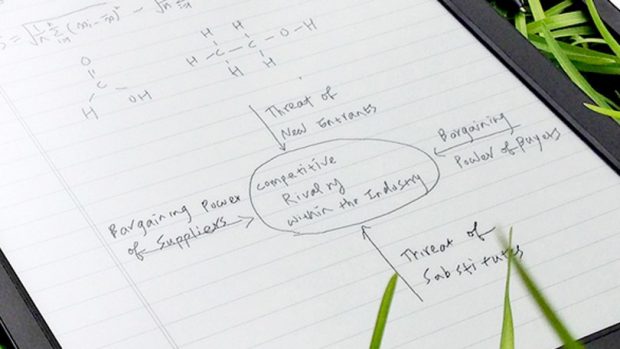 O
C
H
OH
H H
H-C-C-O-H
H H
Threat of
New Entrants
Bargaining
Power of Buyers
competitive
Rivalry
within the Industry
Bargaining Power
of Suppliers
Threat of
Sabstitutes